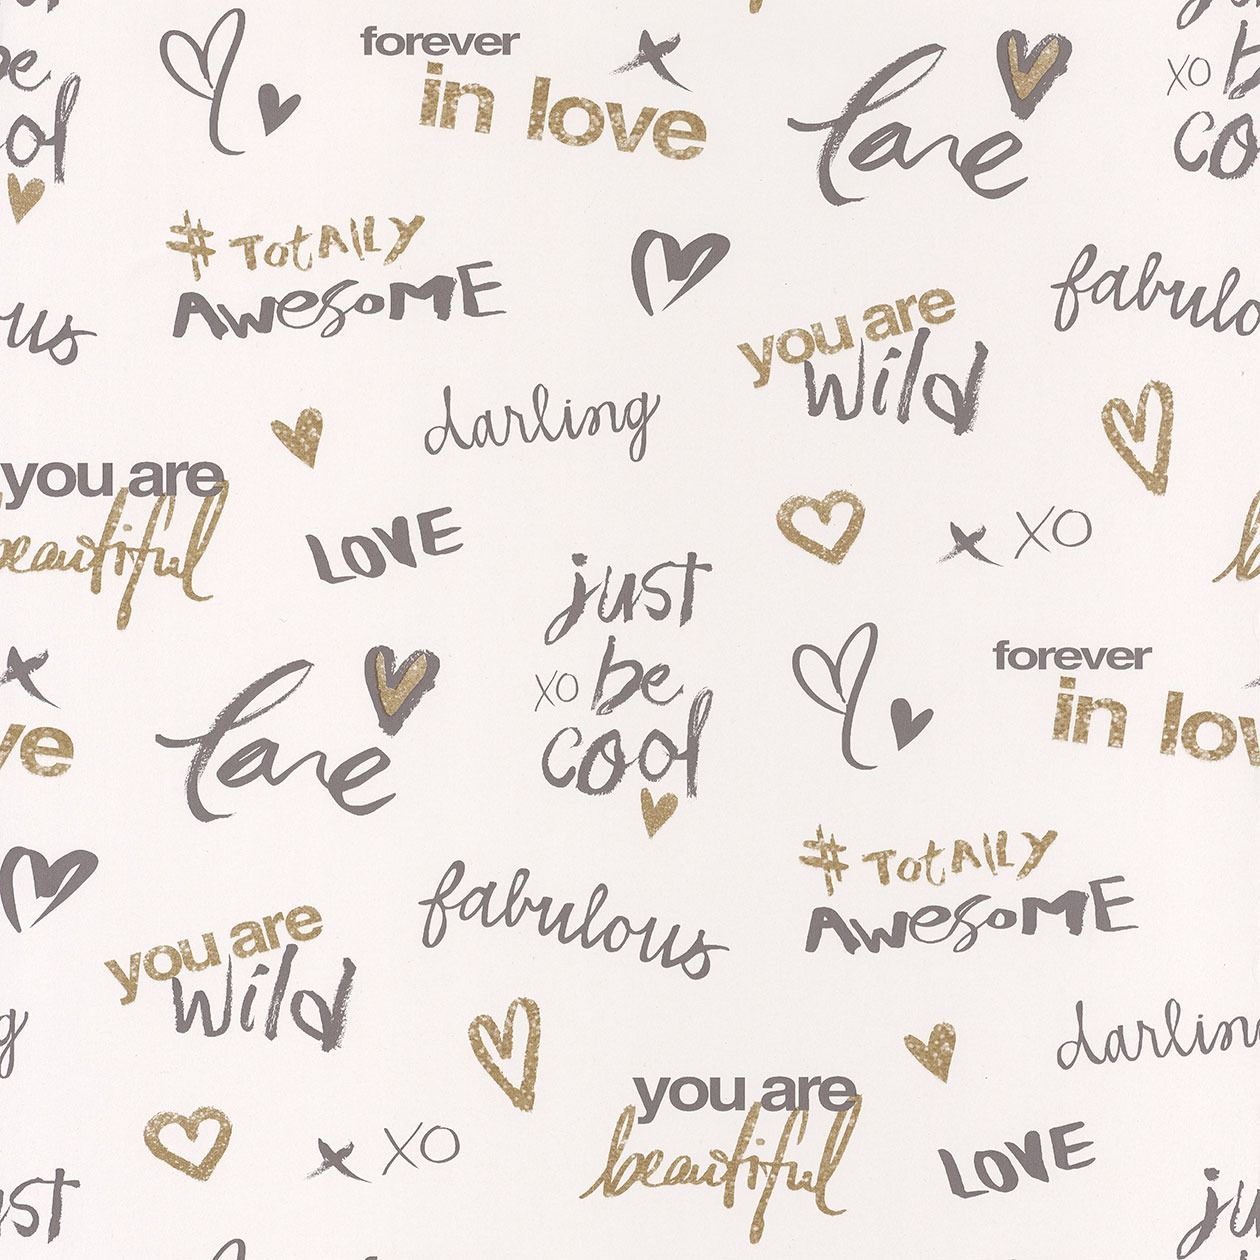 be
xo be
cool
forever
in love
love
# TotAlly
AwesoME
you are
wild
fabulo
us
darling
you are
beautiful
LOVE
XO
just
xo be
cool
love
forever
in lov
ve
# TotAlly
AwesoME
fabulous
you are
wild
darling
you are
beautiful
XO
LOVE
st
ju